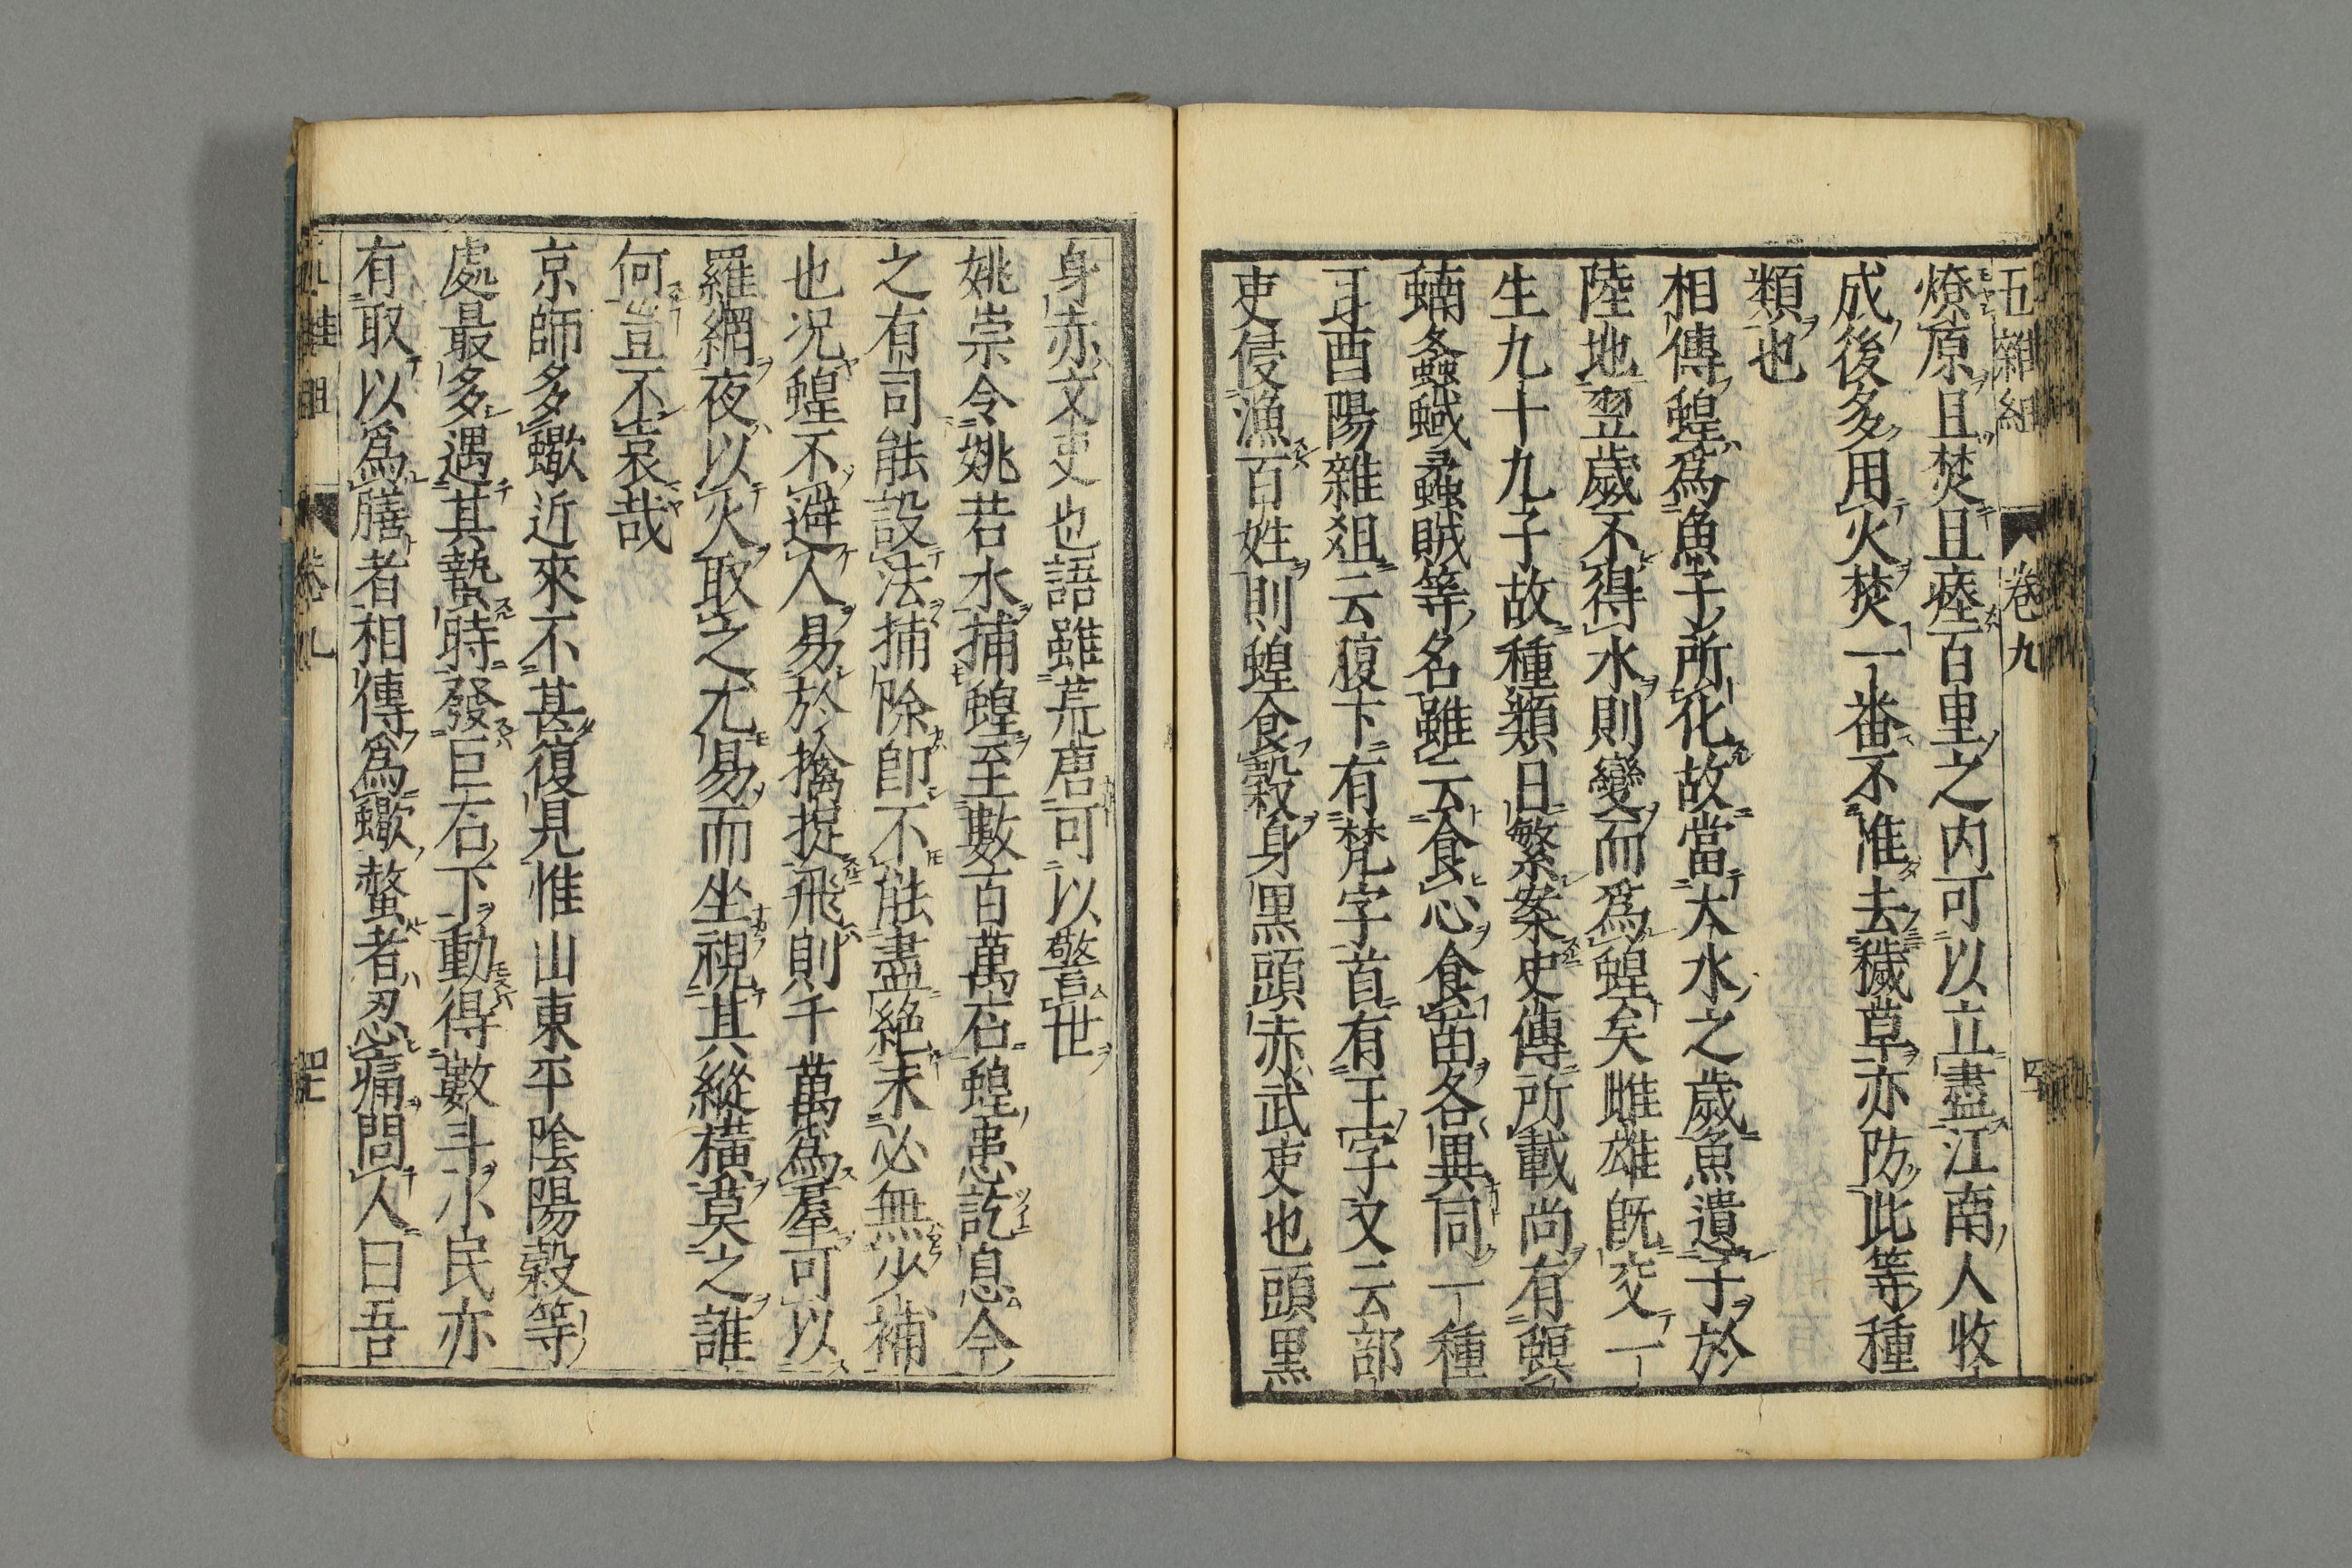 五雜組 卷九
燎原且焚且瘞百里之内可以立盡江南人收
成後多用火焚一番不惟去穢草亦防此等種
類也
相傳蝗爲魚子所化故當大水之歲魚遺子於
陸地翌歲不得水則變而爲蝗矣雌雄既交一
生九十九子故種類日繁案史傳所載尚有螟
蝻螽蟘蟊賊等名雖云食心食苗各異同一種
耳酉陽雜俎云腹下有梵字首有王字又云部
吏侵漁百姓則蝗食穀身黑頭赤武吏也頭黑
身赤文吏也語雖荒唐可以警世
姚崇令姚若水捕蝗至數百萬石蝗患訖息今
之有司能設法捕除即不能盡絶未必無少補
也况蝗不避人易於擒捉飛則千萬爲羣可以
羅網夜以火取之尤易而坐視其縱横莫之誰
何豈不哀哉
京師多蠍近來不甚復見惟山東平陰陽穀等
處最多遇其蟄時發巨石下動得數斗小民亦
有取以爲膳者相傳爲蠍螫者忍痛問人曰吾
卷九